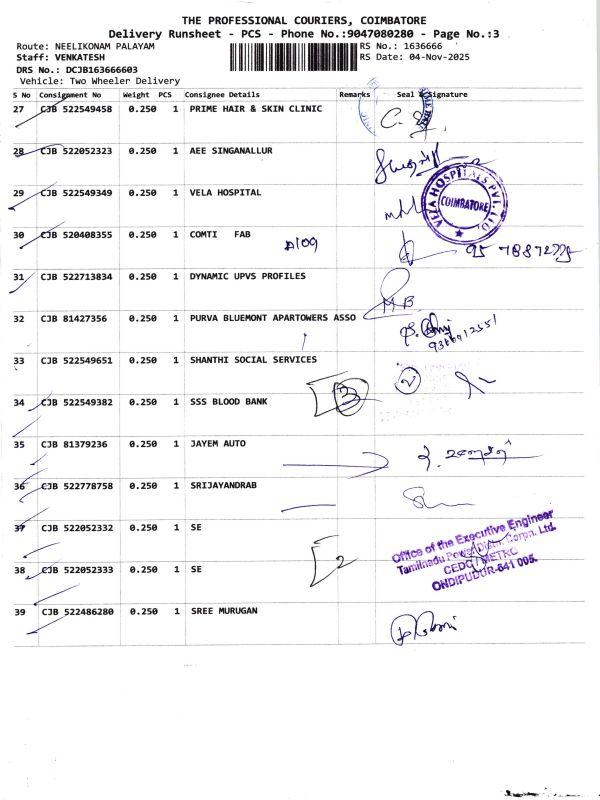 THE PROFESSIONAL COURIERS, COIMBATORE
Delivery Runsheet - PCS - Phone No.:9047080280 - Page No.:3
Route: NEELIKONAM PALAYAM
RS No.: 1636666
Staff: VENKATESH
RS Date: 04-Nov-2025
DRS No.: DCJB163666603
Vehicle: Two Wheeler Delivery
S No Consignment No Weight PCS Consignee Details Remarks Seal & Signature
27 CJB 522549458 0.250 1 PRIME HAIR & SKIN CLINIC
28 CJB 522052323 0.250 1 AEE SINGANALLUR
29 CJB 522549349 0.250 1 VELA HOSPITAL
VELA HOSPITALS PVT. LTD.
COIMBATORE
30 CJB 520408355 0.250 1 COMTI FAB
31 CJB 522713834 0.250 1 DYNAMIC UPVS PROFILES
MB
32 CJB 81427356 0.250 1 PURVA BLUEMONT APARTOWERS ASSO
33 CJB 522549651 0.250 1 SHANTHI SOCIAL SERVICES
3
34 CJB 522549382 0.250 1 SSS BLOOD BANK
35 CJB 81379236 0.250 1 JAYEM AUTO
36 CJB 522778758 0.250 1 SRIJAYANDRAB
37 CJB 522052332 0.250 1 SE
2
Office of the Executive Engineer
Tamilnadu Power Distn. Corpn. Ltd.
CEDC / METRO
ONDIPUDUR-641 005.
38 CJB 522052333 0.250 1 SE
39 CJB 522486280 0.250 1 SREE MURUGAN